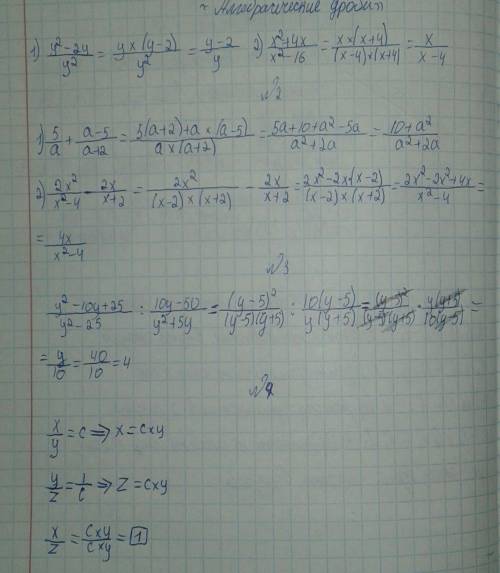 ~ Алгебраические дроби~
1) (y²-2y)/y² = (y×(y-2))/y² = (y-2)/y 2) (x²+4x)/(x²-16) = (x×(x+4))/((x-4)×(x+4)) = x/(x-4)
№2
1) 5/a + (a-5)/(a+2) = (5(a+2)+a×(a-5))/(a×(a+2)) = (5a+10+a²-5a)/(a²+2a) = (10+a²)/(a²+2a)
2) 2x²/(x²-4) - 2x/(x+2) = 2x²/((x-2)×(x+2)) - 2x/(x+2) = (2x²-2x×(x-2))/((x-2)×(x+2)) = (2x²-2x²+4x)/(x²-4) =
= 4x/(x²-4)
№3
(y²-10y+25)/(y²-25) : (10y-50)/(y²+5y) = (y-5)²/((y-5)(y+5)) : 10(y-5)/(y(y+5)) = (y-5)²/((y-5)(y+5)) · y(y+5)/(10(y-5)) =
= y/10 = 40/10 = 4
№4
x/y = c ⇒ x = c×y
y/z = 1/c ⇒ z = c×y
x/z = c×y/c×y = 1